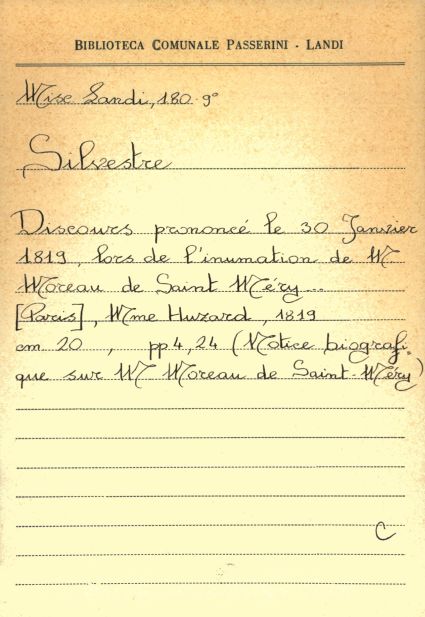 BIBLIOTECA COMUNALE PASSERINI - LANDI
Misc Landi, 180.9°
Silvestre
Discours prononcé le 30 Janvier
1819, lors de l'inumation de M
Moreau de Saint Méry...
[Paris], Mme Huzard, 1819
cm 20, pp 4, 24 (Notice biografi
que sur M Moreau de Saint-Méry)
C